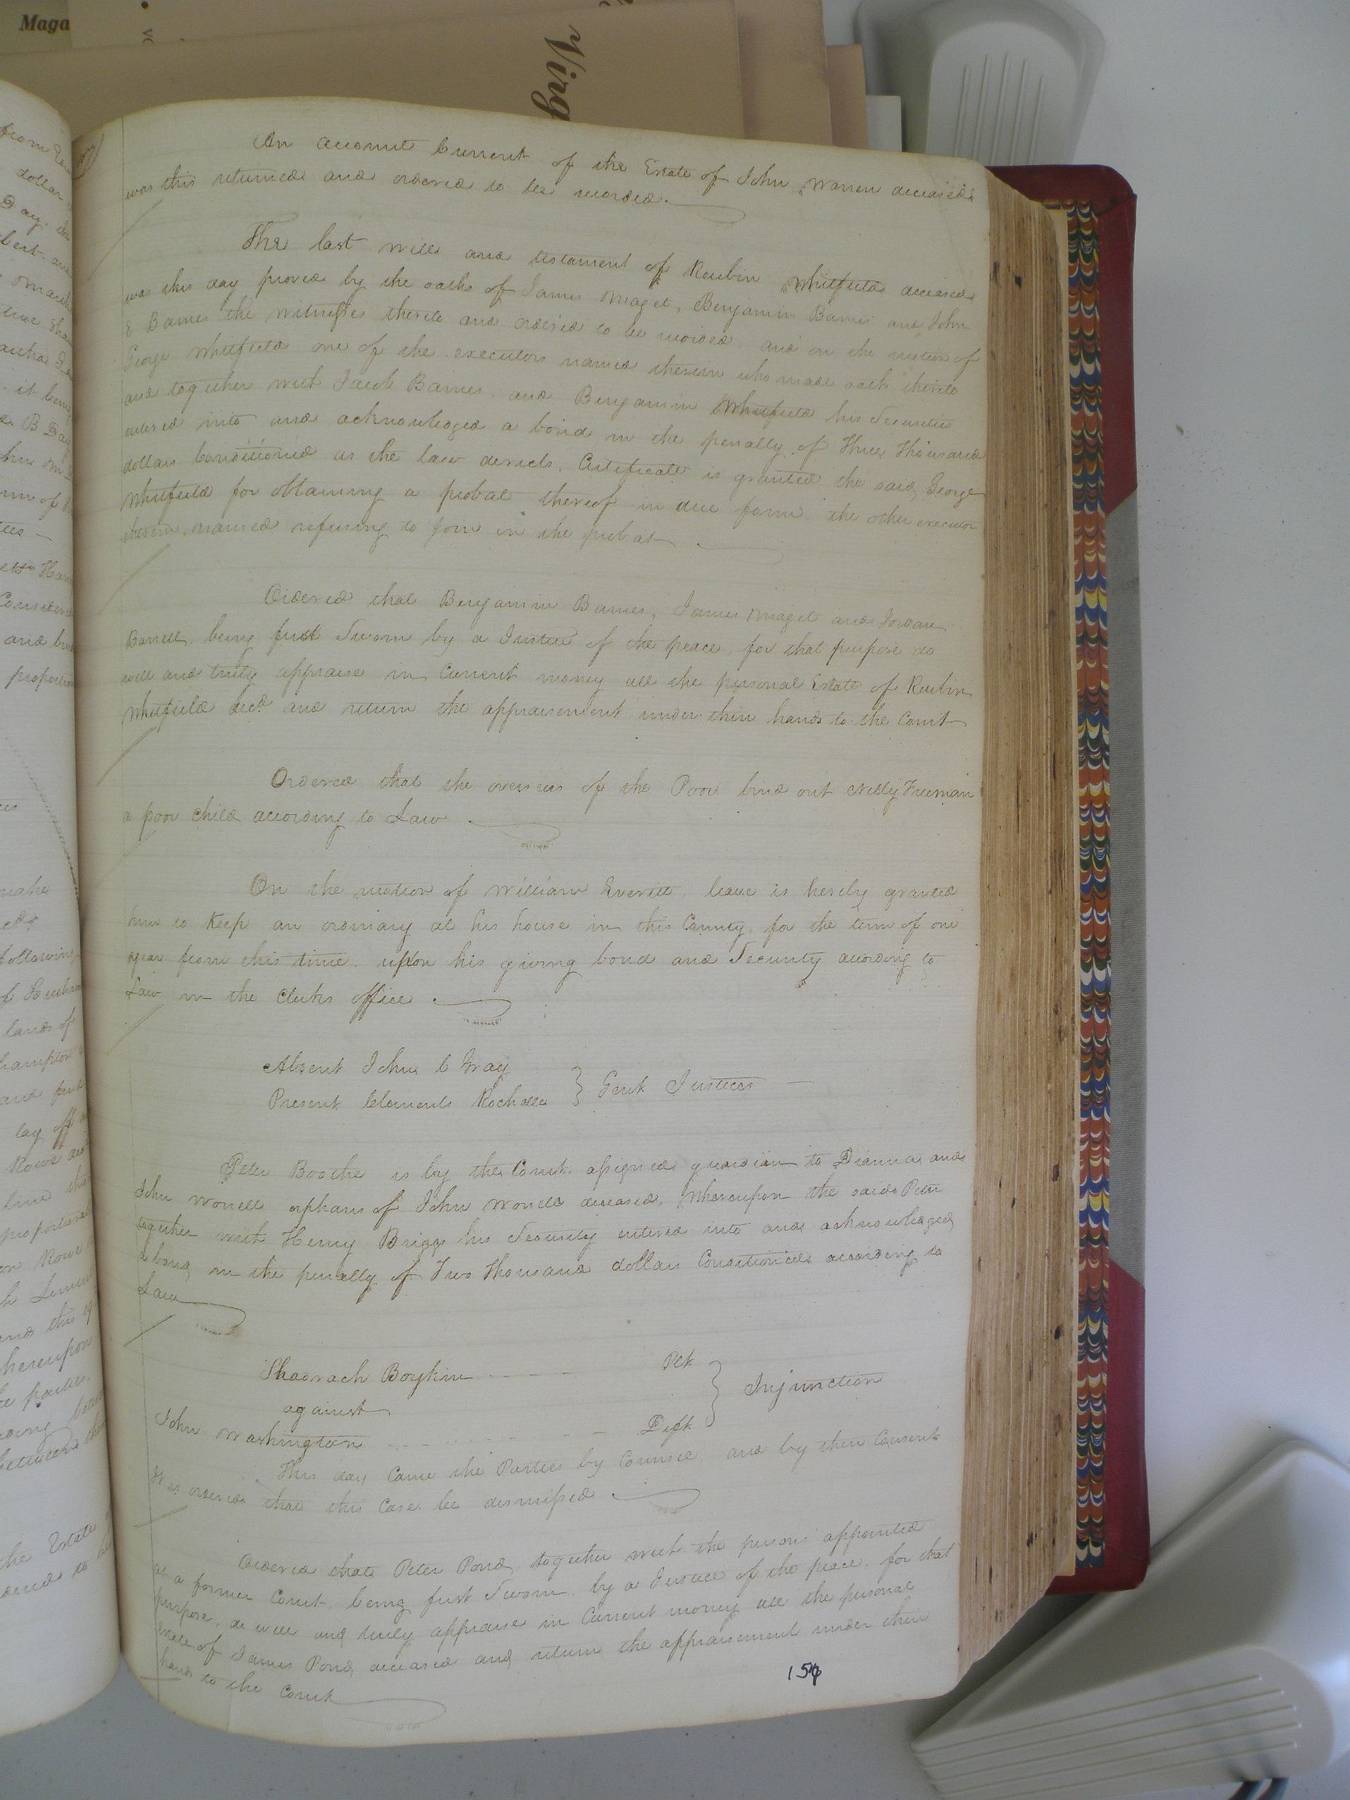 Maga
Virg
An account Current of the Estate of John Warren deceased
was this returned and ordered to be recorded.
The last will and testament of Reubin Whitfield deceased
was this day proved by the oaths of James Maget, Benjamin Barnes and John
E Barnes the witnesses thereto and ordered to be recorded and on the motion of
George Whitfield one of the executors named therein who made oath thereto
and together with Jacob Barnes and Benjamin Whitfield his Securities
entered into and acknowledged a bond in the penalty of Three Thousand
dollars Conditioned as the law directs, Certificate is granted the said George
Whitfield for obtaining a probat thereof in due form the other executor
therein named refusing to join in the probat
Ordered that Benjamin Barnes, James Maget and Jordan
Barrett being first Sworn by a Justice of the peace for that purpose do
well and truly appraise in Current money all the personal Estate of Reubin
Whitfield decd. and return the appraisement under their hands to the Court
Ordered that the overseers of the Poor bind out Nelly Freeman
a poor child according to Law
On the motion of William Everitt leave is hereby granted
him to Keep an ordinary at his house in this County for the term of one
year from this time upon his giving bond and Security according to
Law in the Clerks office
Absent John C Gray
Present Clements Rochelle } Gent Justices
Peter Boothe is by the Court assigned guardian to Dianna and
John Worrell orphans of John Worrell deceased, Whereupon the said Peter
together with Henry Briggs his Security entered into and acknowledged
a bond in the penalty of Two Thousand dollars Conditioned according to
Law
Shadrach Boykin Plt
against } Injunction
John Washington Deft
This day Came the Parties by Counsel and by their Consent
It is ordered that this Case be dismissed.
Ordered that Peter Pond together with the persons appointed
at a former Court being first Sworn by a Justice of the peace for that
purpose, do well and truly appraise in Current money all the personal
estate of James Pond deceased and return the appraisement under their
hands to the Court
154